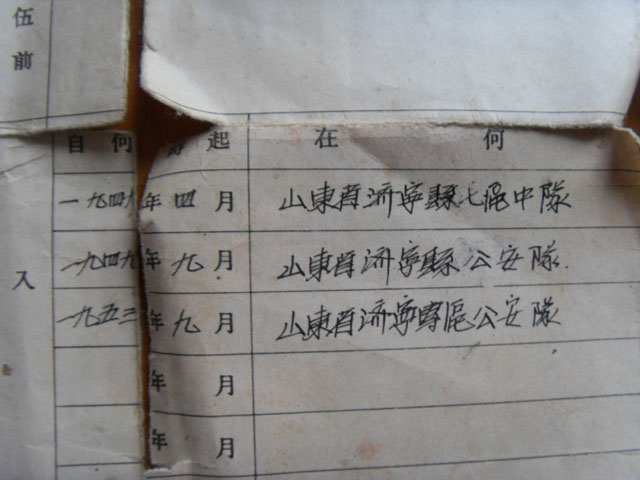 伍前
自何 起 在 何
一九四九年四月 山東省济寧縣七區中隊
一九四九年九月 山東省济寧縣公安隊.
入
一九五三年九月 山東省济寧專區公安隊
年 月
年 月